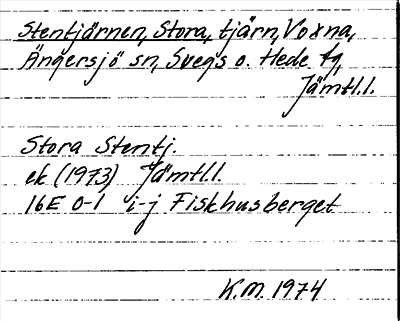 Stentjärnen, Stora, tjärn, Voxna,
Ängersjö sn, Svegs o. Hede tg,
Jämtl.l.
Stora Stentj.
ek (1973) Jämtl.l.
16E 0-1 i-j Fiskhusberget
K.M. 1974